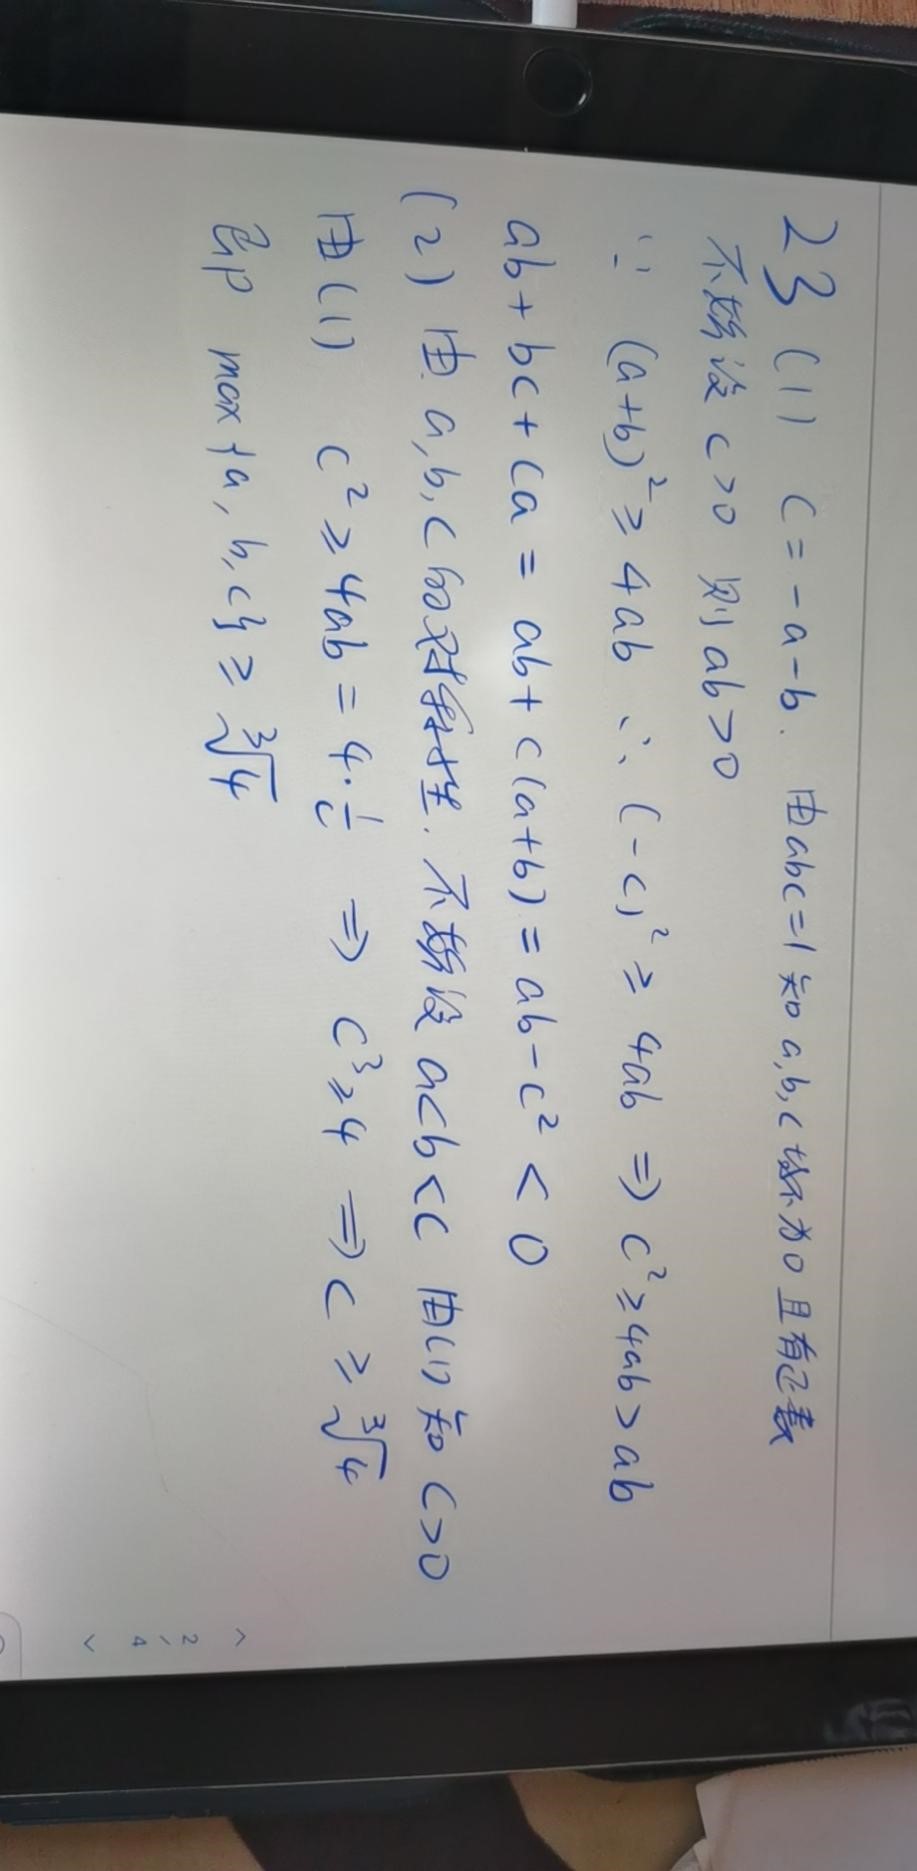 23 (1) C=-a-b. 由abc=1知a,b,c均不为0且有正数
不妨设 c>0 则 ab>0
∵ (a+b)²≥4ab ∴ (-c)²≥4ab ⇒ c²≥4ab>ab
ab+bc+ca=ab+c(a+b)=ab-c²<0
(2) 由a,b,c的对称性.不妨设a<b<c 由(1)知c>0
由(1) c²≥4ab=4·1/c ⇒ c³≥4 ⇒ c≥∛4
即 max{a,b,c}≥∛4
4 / 2